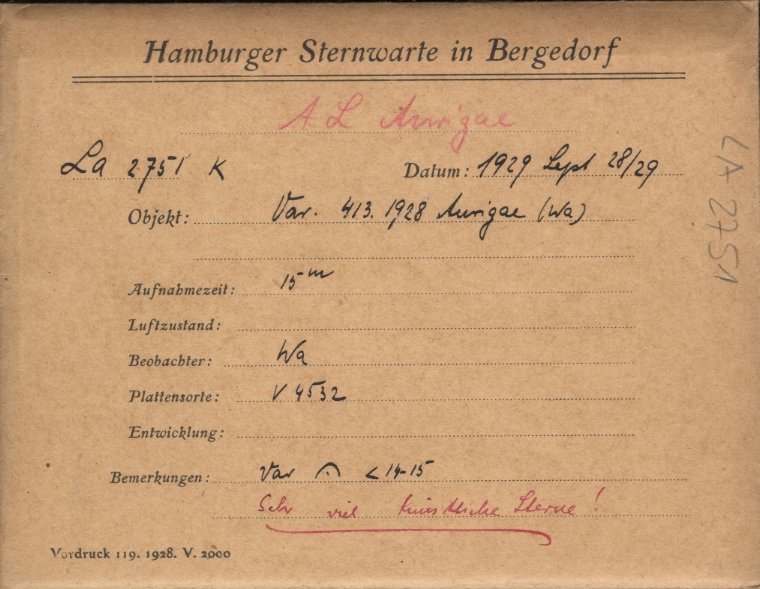 Hamburger Sternwarte in Bergedorf
AL Aurigae
La 2751 K
Datum: 1929 Sept 28/29
Objekt: Var. 413.1928 Aurigae (Wa)
Aufnahmezeit: 15m
Luftzustand:
Beobachter: Wa
Plattensorte: V 4532
Entwicklung:
Bemerkungen: Var < 14-15
Sehr viel künstliche Sterne!
Vordruck 119. 1928. V. 2000
LA 2751